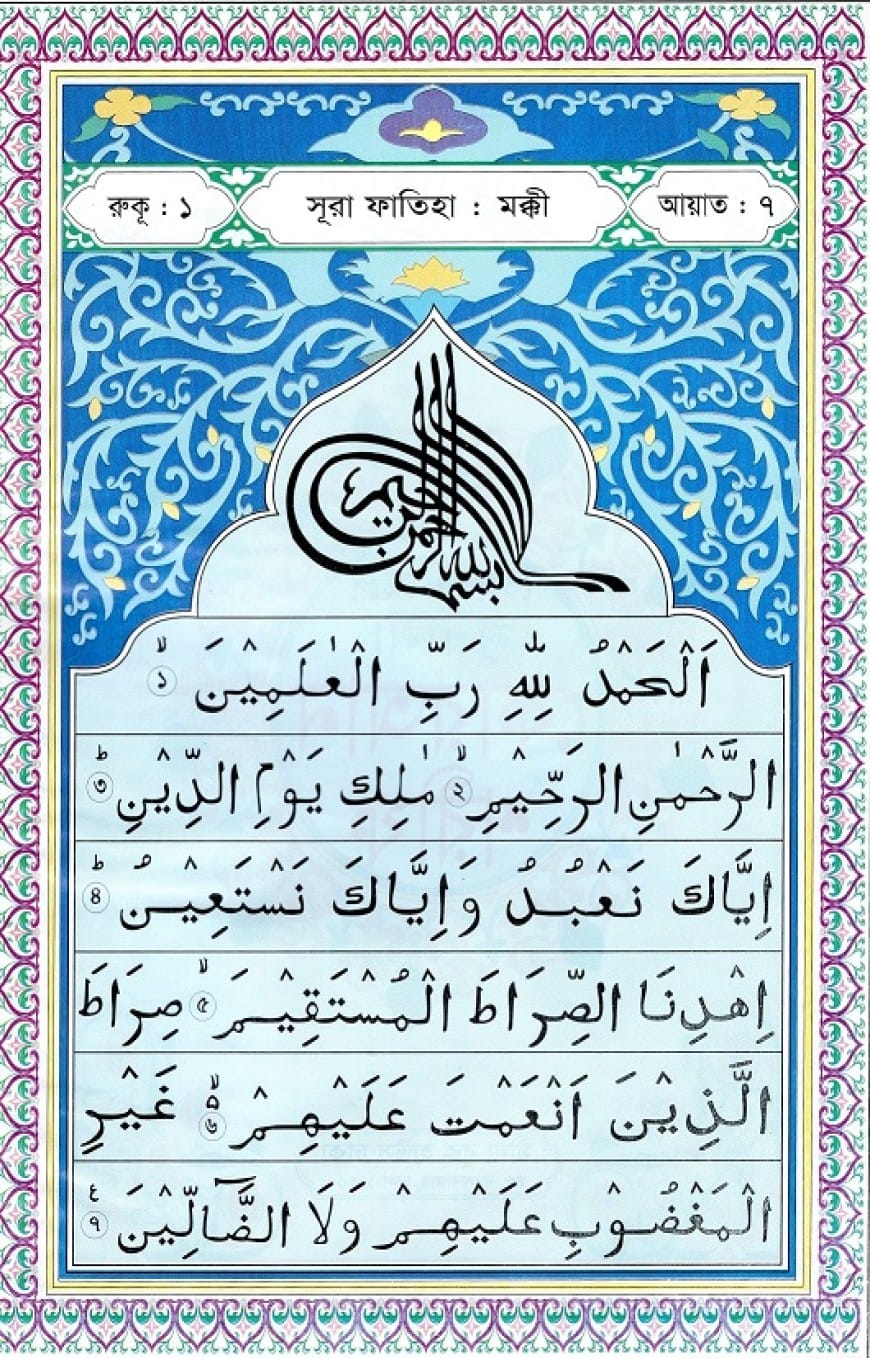 রুকূ : ১
সূরা ফাতিহা : মক্কী
আয়াত : ৭
بسم الله الرحمن الرحيم
اَلْحَمْدُ لِلّٰهِ رَبِّ الْعٰلَمِيْنَ ۙ ১
الرَّحْمٰنِ الرَّحِيْمِ ۙ ২ مٰلِكِ يَوْمِ الدِّيْنِ ؕ ৩
اِيَّاكَ نَعْبُدُ وَاِيَّاكَ نَسْتَعِيْنُ ؕ ৪
اِهْدِنَا الصِّرَاطَ الْمُسْتَقِيْمَ ۙ ৫ صِرَاطَ
الَّذِيْنَ اَنْعَمْتَ عَلَيْهِمْ ۙ ৬ غَيْرِ
الْمَغْضُوْبِ عَلَيْهِمْ وَلَا الضَّآلِّيْنَ ع ৭